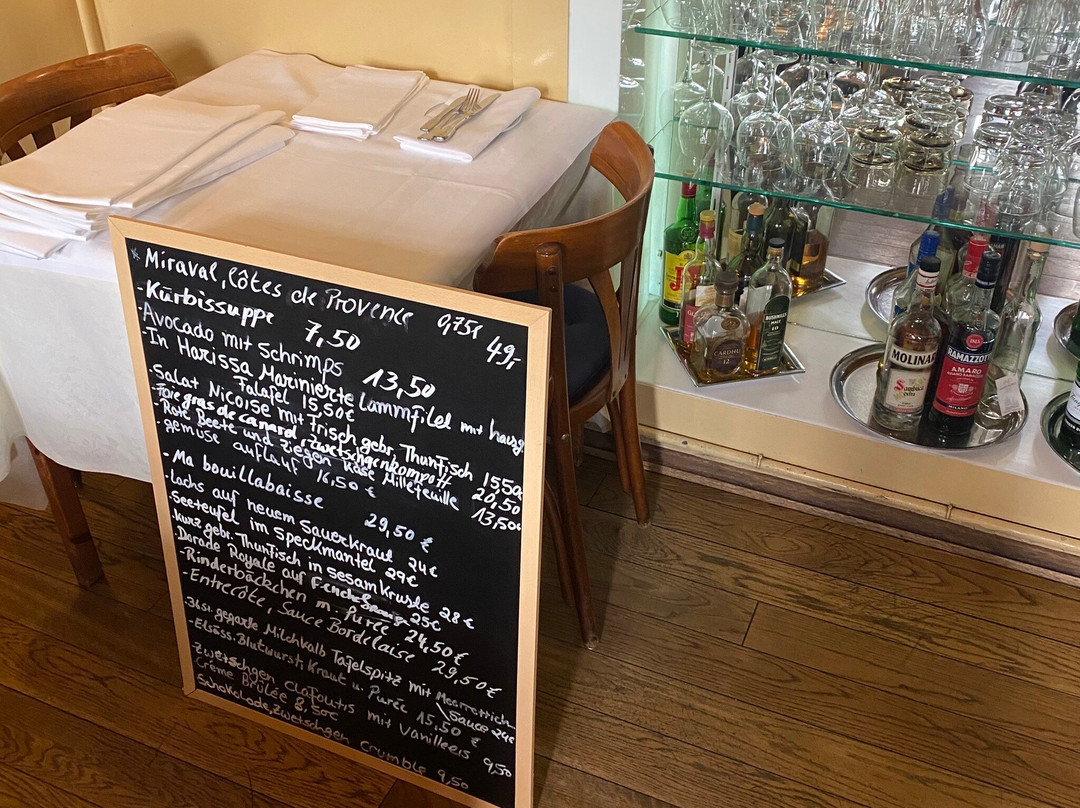 * Miraval, Côtes de Provence 0,75l 49,-
- Kürbissuppe 7,50
- Avocado mit Schrimps 13,50
- In Harissa Marinierte Lammfilet mit hausg.
Falafel 15,50€
- Salat Nicoise mit frisch gebr. Thunfisch 15,50€
- Foie gras de canard, Zwetschgenkompott 20,50
- Rote Beete und Ziegen Käse Millefeuille 13,50€
gemüse auflauf 16,50 €
- Ma bouillabaisse 29,50 €
- Lachs auf neuem Sauerkraut 24€
- Seeteufel im Speckmantel 29€
- kurz gebr. Thunfisch in Sesam Kruste 28€
- Dorade Royale auf 25€
- Rinderbäckchen m. Purée 24,50€
- Entrecôte, Sauce Bordelaise 29,50€
- 36St. gegarte Milchkalb Tafelspitz mit Meerrettich
Sauce 24€
- Elsäss. Blutwurst, Kraut u. Purée 15,50 €
- Zwetschgen Clafoutis mit Vanilleeis 9,50
Crème Brûlée 8,50€
Schokolade, Zwetschgen Crumble 9,50
CARDHU
12
BUSHMILLS
MOLINARI
Sambuca
Extra
RAMAZZOTTI
AMARO
MILANO